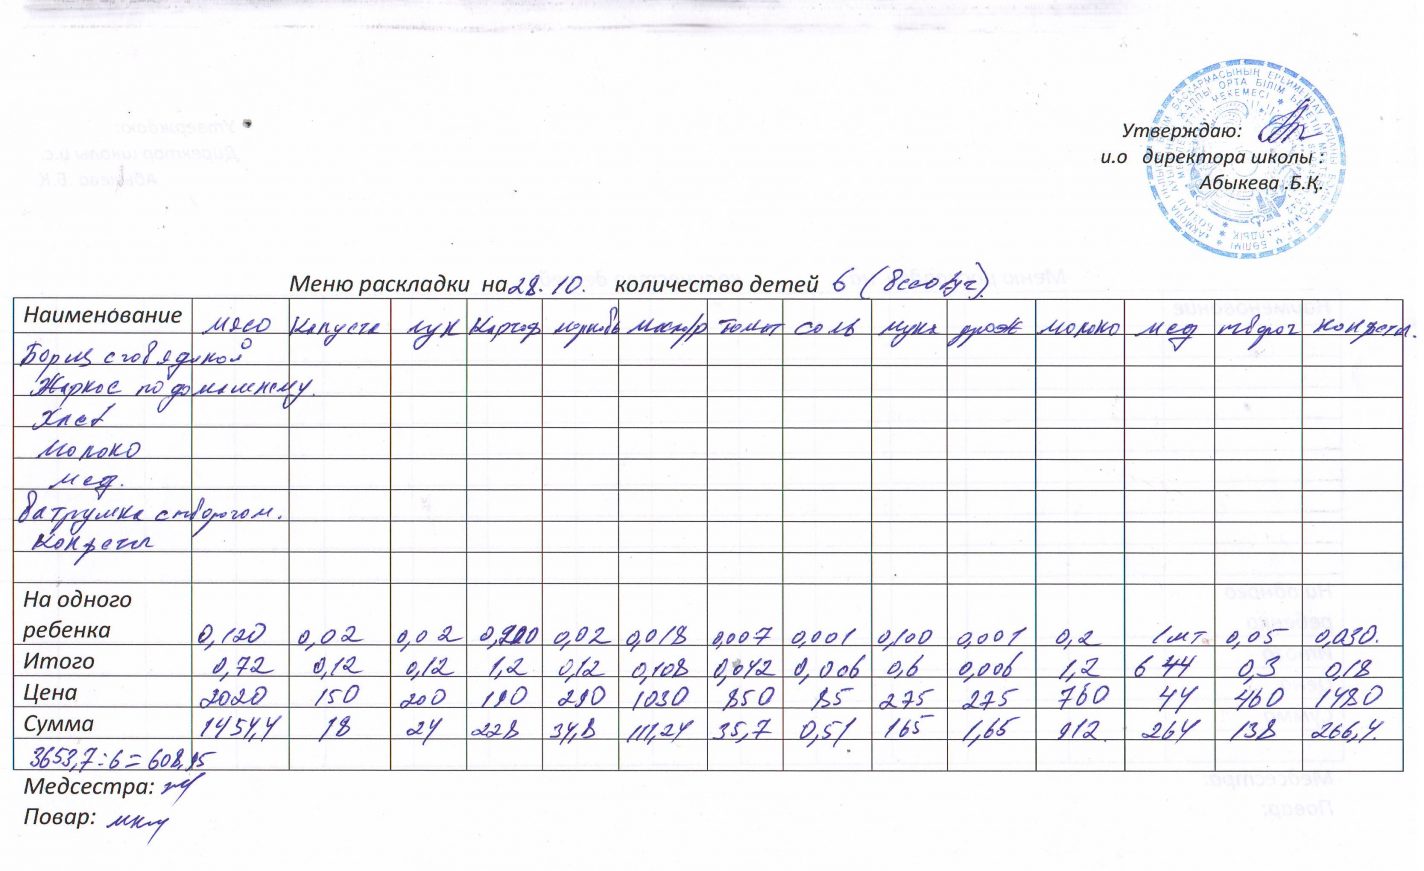 Утверждаю:
и.о директора школы :
Абыкева .Б.Қ.
Меню раскладки на 28.10. количество детей 6
Наименование мясо капуста лук картоф морковь масло/р томат соль мука дрож молоко мед творог конфеты.
Борщ с говядиной
Жаркое по домашнему.
Хлеб
Молоко
мед.
Ватрушка с творогом.
Конфеты
На одного
ребенка 0,120 0,02 0,02 0,200 0,02 0,018 0,007 0,001 0,100 0,001 0,2 1шт 0,05 0,030.
Итого 0,72 0,12 0,12 1,2 0,12 0,108 0,042 0,006 0,6 0,006 1,2 6 0,3 0,18
Цена 2020 150 200 190 290 1030 850 85 275 275 760 44 460 1480
Сумма 1454,4 18 24 228 34,8 111,24 35,7 0,51 165 1,65 912 264 138 266,4.
3653,7:6=608,95
Медсестра:
Повар: